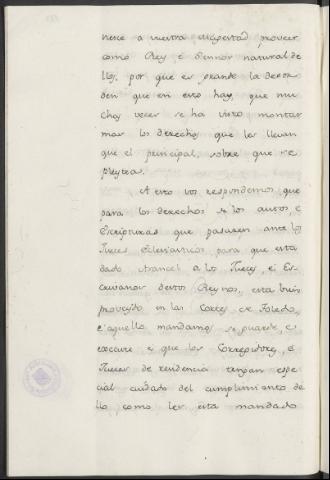 nesce a vuestra Magestad proveer
como Rey é Sennor natural de
llo, por que es grande la desor
den que en esto hay, que mu
chas veces se ha visto montar
mas los derechos que les llevan
que el principal, sobre que se
pleytea.
A esto vos respondemos que
para los derechos de los autos, é
escripturas que pasaren ante los
Jueces eclesiasticos para que esta
dado Arancel a los Jueces, é Es
crivanos destos Reynos, esta bien
proveydo en las Cortes de Toledo,
é aquello mandamos se guarde, é
execute é que los Corregidores, é
Jueces de residencia tengan espe
cial cuidado del cumplimiento de
llo como les esta mandado